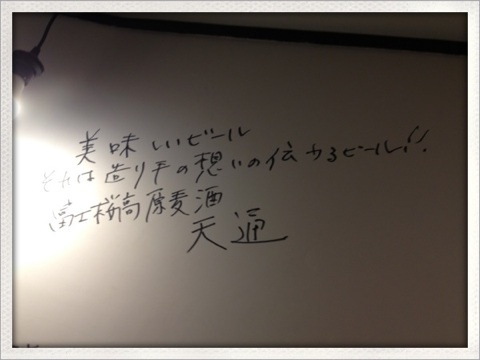 美味しいビール
それは造り手の想いの伝わるビール!!
富士桜高原麦酒
天通